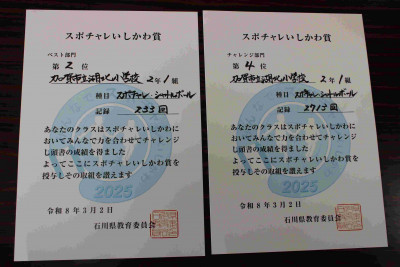 スポチャレいしかわ賞
ベスト部門
第 2 位
加賀市立湖北小学校 2年1組
種目 スポチャレ・シャトルボール
記録 233回
あなたのクラスはスポチャレいしかわに
おいてみんなで力を合わせてチャレンジ
し頭書の成績を得ました
よってここにスポチャレいしかわ賞を
授与しその収組を讃えます
2025
令和8年3月2日
石川県教育委員会
スポチャレいしかわ賞
チャレンジ部門
第 4 位
加賀市立湖北小学校 2年1組
種目 スポチャレ・シャトルボール
記録 2713回
あなたのクラスはスポチャレいしかわに
おいてみんなで力を合わせてチャレンジ
し頭書の成績を得ました
よってここにスポチャレいしかわ賞を
授与しその収組を讃えます
2025
令和8年3月2日
石川県教育委員会